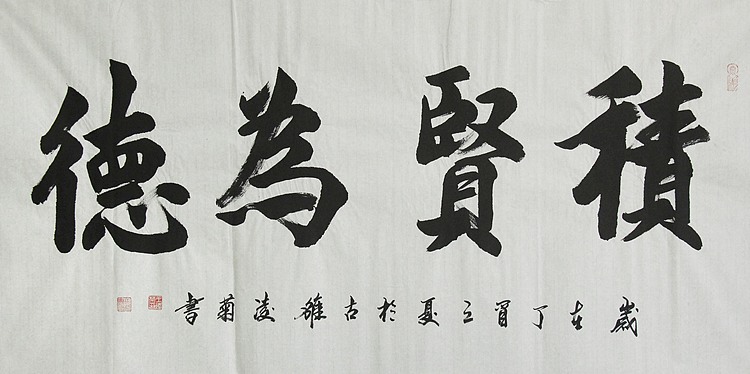 積賢為德
歲在丁酉之夏於古雒凌菊書